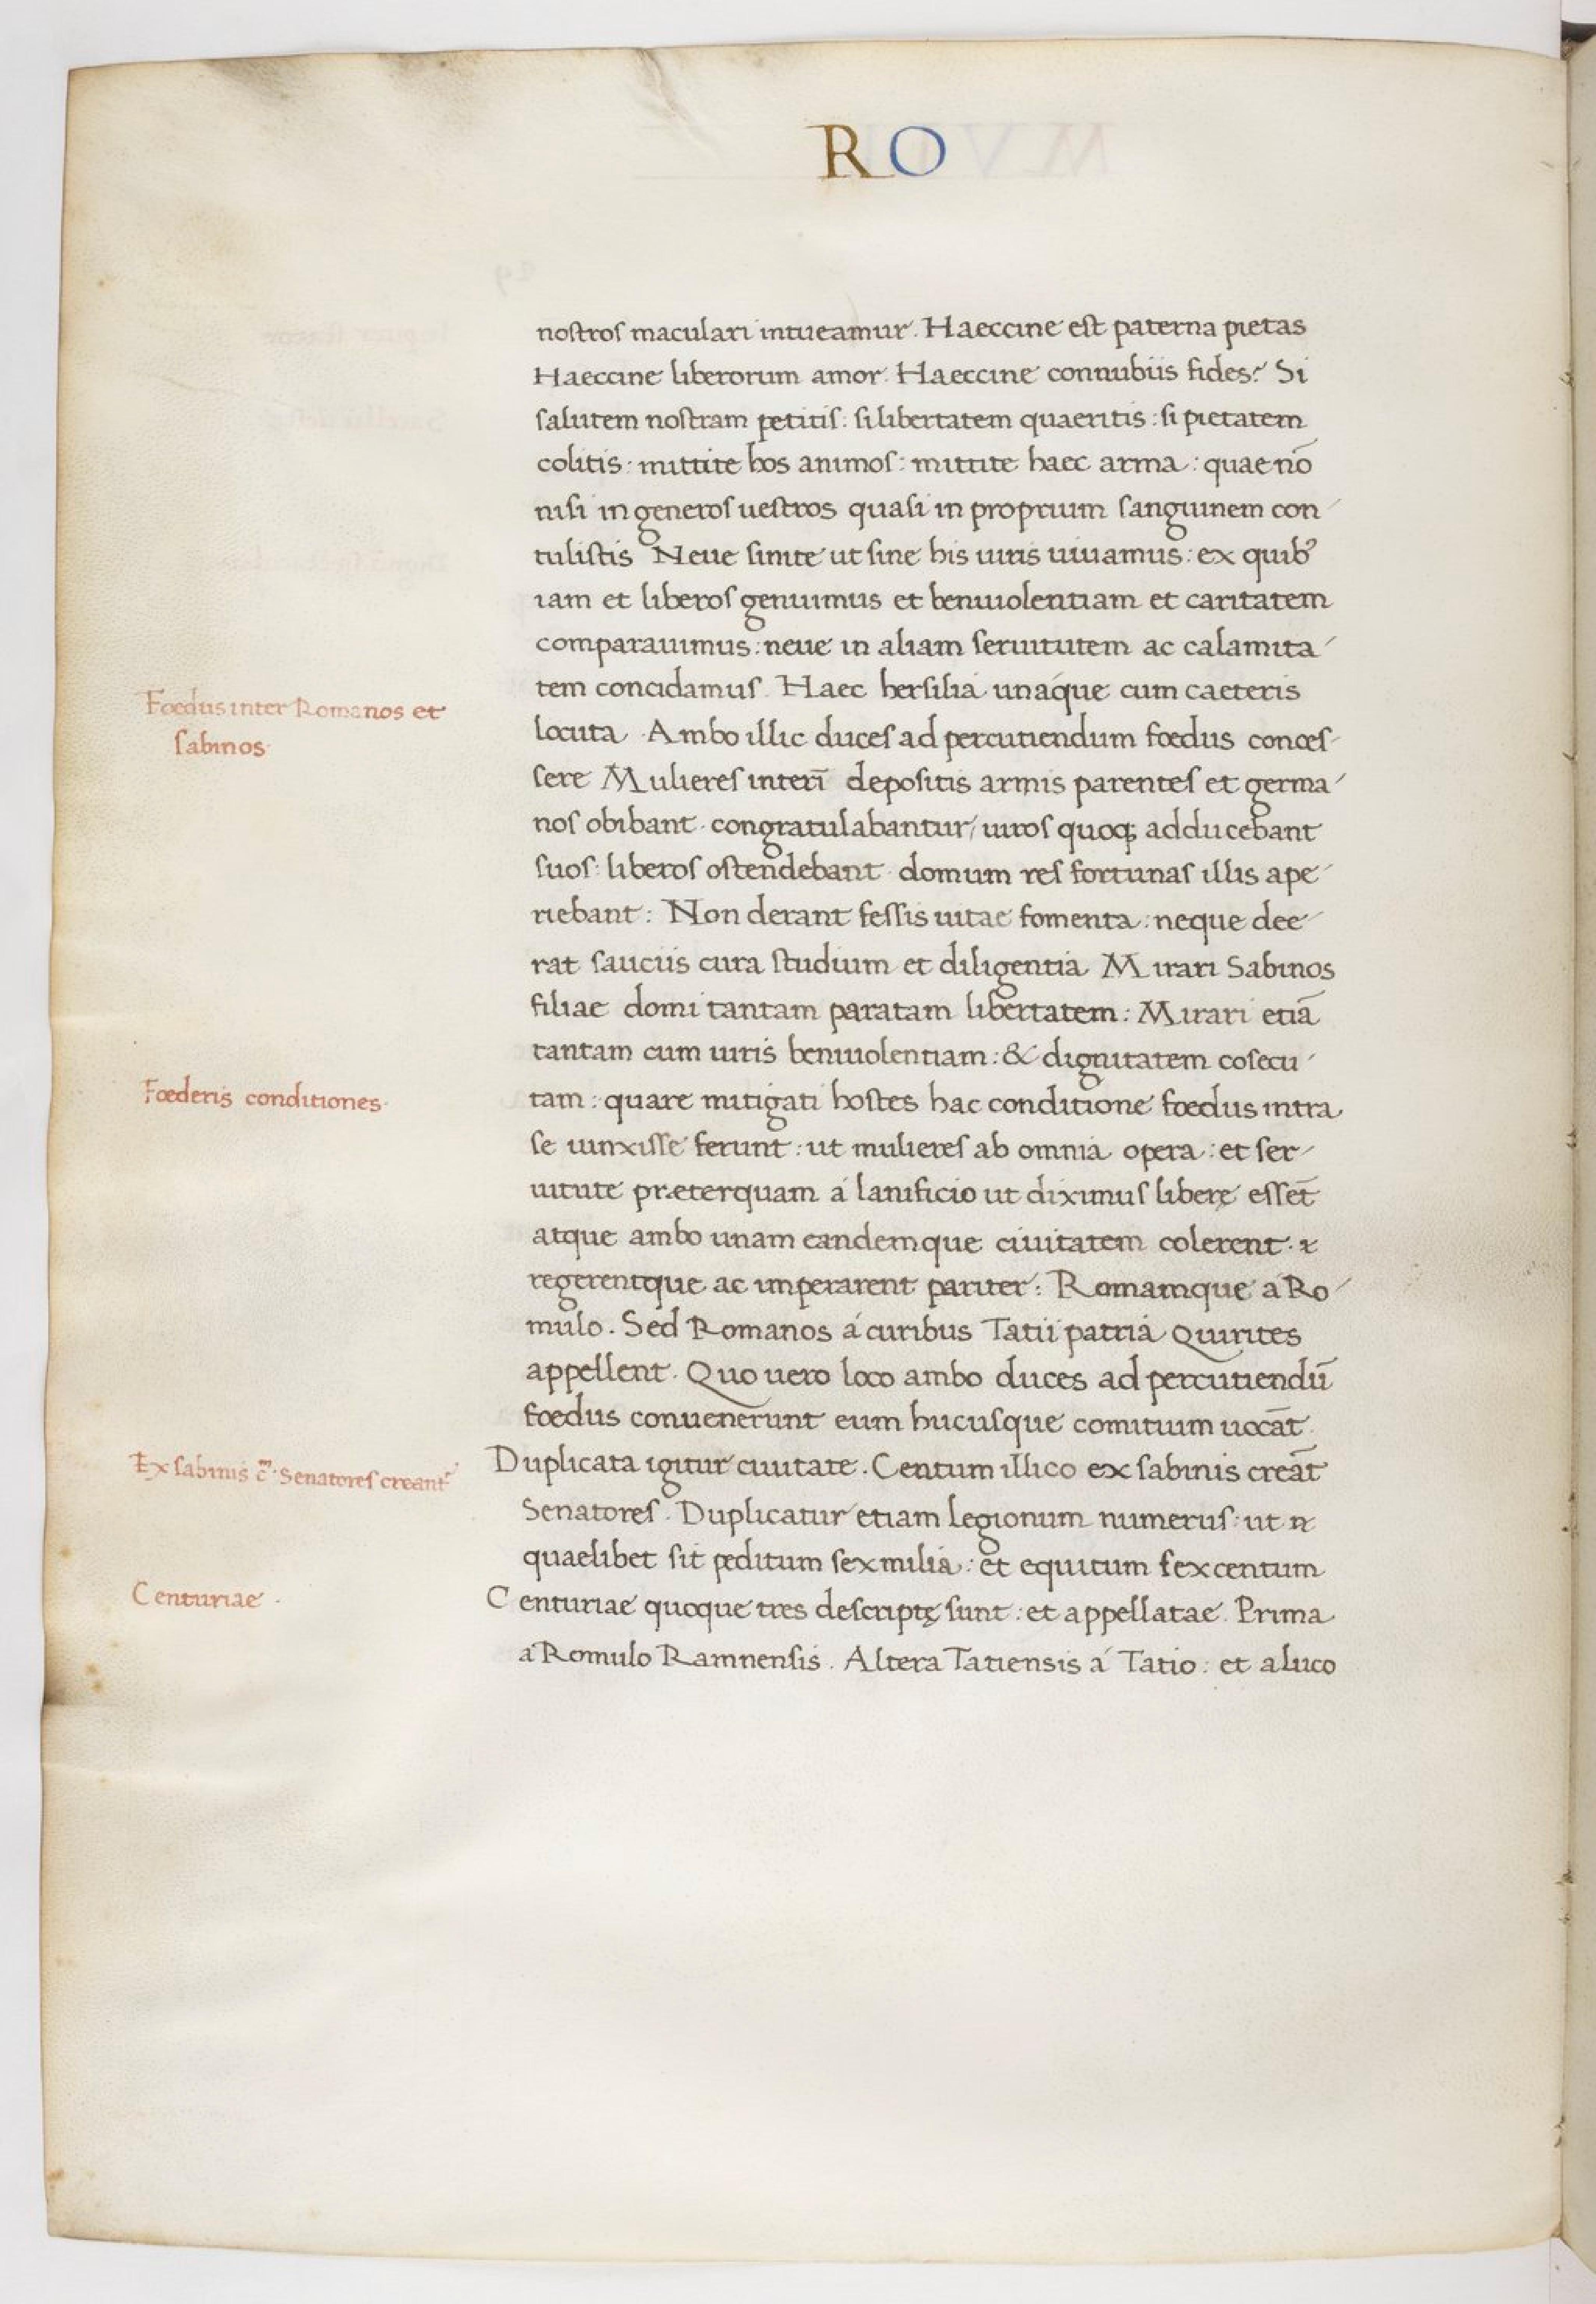 RO
nostros maculari intueamur. Haeccine est paterna pietas
Haeccine liberorum amor. Haeccine connubiis fides? Si
salutem nostram petitis: si libertatem quaeritis: si pietatem
colitis: mittite hos animos: mittite haec arma: quae nō
nisi in generos uestros quasi in proprium sanguinem con
tulistis Neue sinite ut sine his uiris uiuamus: ex quibꝰ
iam et liberos genuimus et beniuolentiam et caritatem
comparauimus: neue in aliam seruitutem ac calamita
tem concidamus. Haec hersilia unáque cum caeteris
Foedus inter Romanos et
sabinos
locuta. Ambo illic duces ad percutiendum foedus conces
sere Mulieres interī depositis armis parentes et germa
nos obibant. congratulabantur, uiros quoqꝫ adducebant
suos: liberos ostendebant. domum res fortunas illis ape
riebant: Non derant fessis uitae fomenta: neque dee
rat sauciis cura studium et diligentia Mirari Sabinos
filiae domi tantam paratam libertatem: Mirari etiā
tantam cum uiris beniuolentiam: & dignitatem cosecu
Foederis conditiones.
tam: quare mitigati hostes hac conditione foedus intra
se uinxisse ferunt: ut mulieres ab omnia opera: et ser
uitute præterquam á lanificio ut diximus liberę essēt
atque ambo unam eandemque ciuitatem colerent.
regerentque ac imperarent pariter: Romamque á Ro
mulo. Sed Romanos á curibus Tatii patria Quirites
appellent. Quo uero loco ambo duces ad percutiendū
foedus conuenerunt eum hucusque comitium uocāt.
Ex sabinis c̄. Senatores creant
Duplicata igitur ciuitate. Centum illico ex sabinis creāt
Senatores. Duplicatur etiam legionum numerus: ut
quaelibet sit peditum sex milia: et equitum sexcentum
Centuriae.
Centuriae quoque tres descriptę sunt: et appellatae. Prima
á Romulo Ramnensis. Altera Tatiensis á Tatio: et a luco